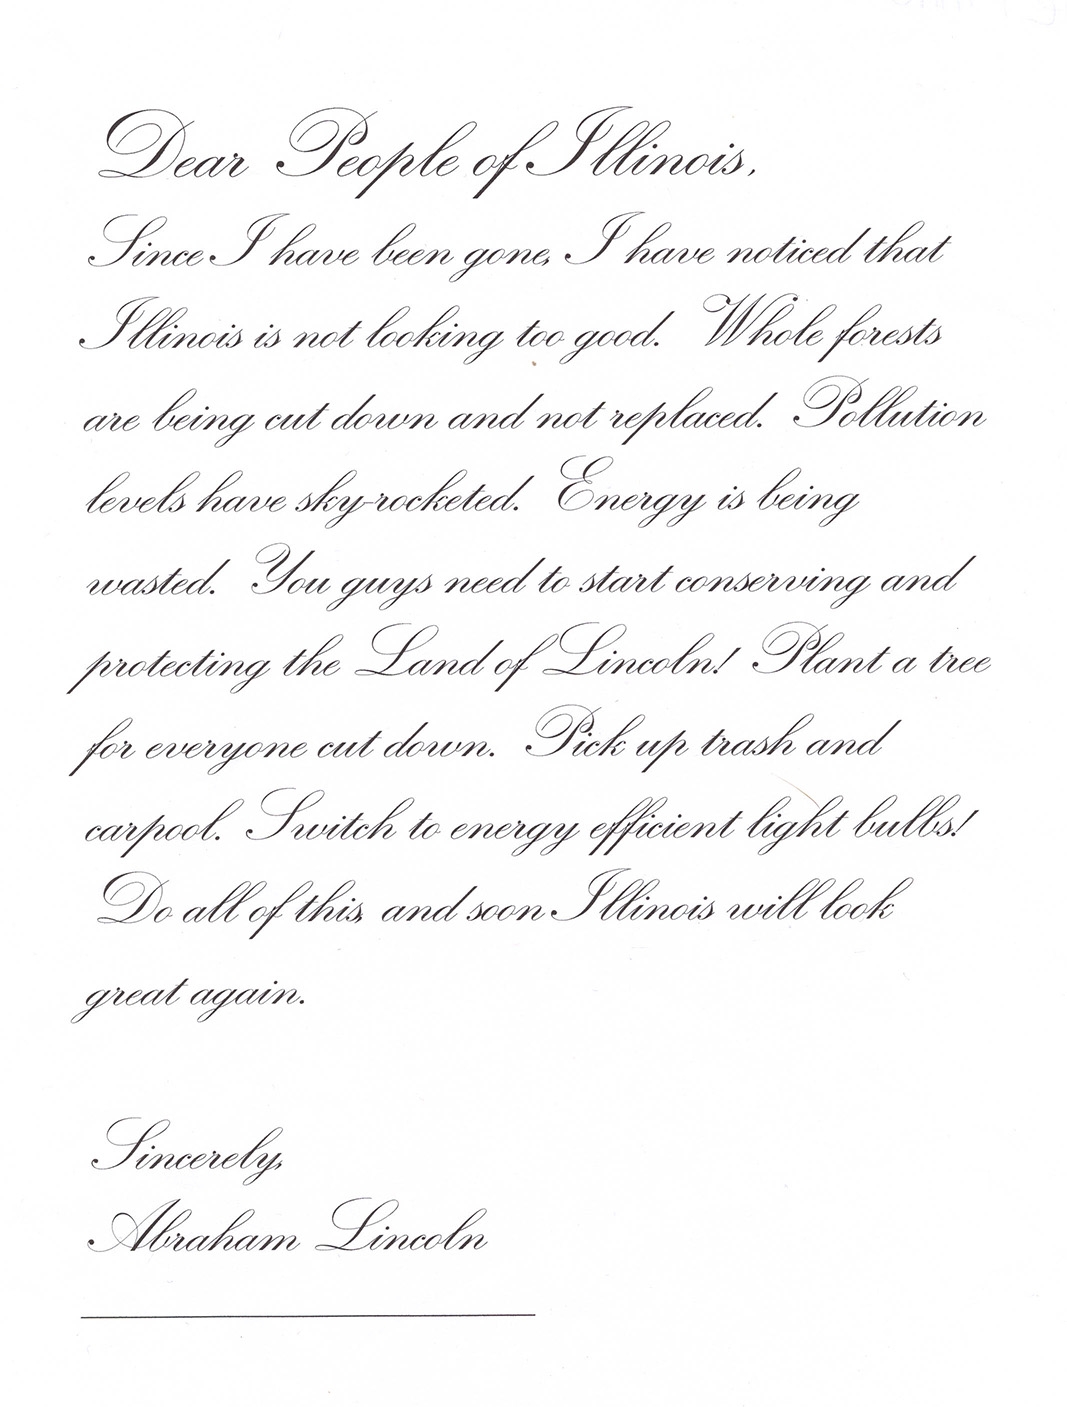 Dear People of Illinois,
Since I have been gone, I have noticed that
Illinois is not looking too good. Whole forests
are being cut down and not replaced. Pollution
levels have sky-rocketed. Energy is being
wasted. You guys need to start conserving and
protecting the Land of Lincoln! Plant a tree
for everyone cut down. Pick up trash and
carpool. Switch to energy efficient light bulbs!
Do all of this, and soon Illinois will look
great again.
Sincerely,
Abraham Lincoln